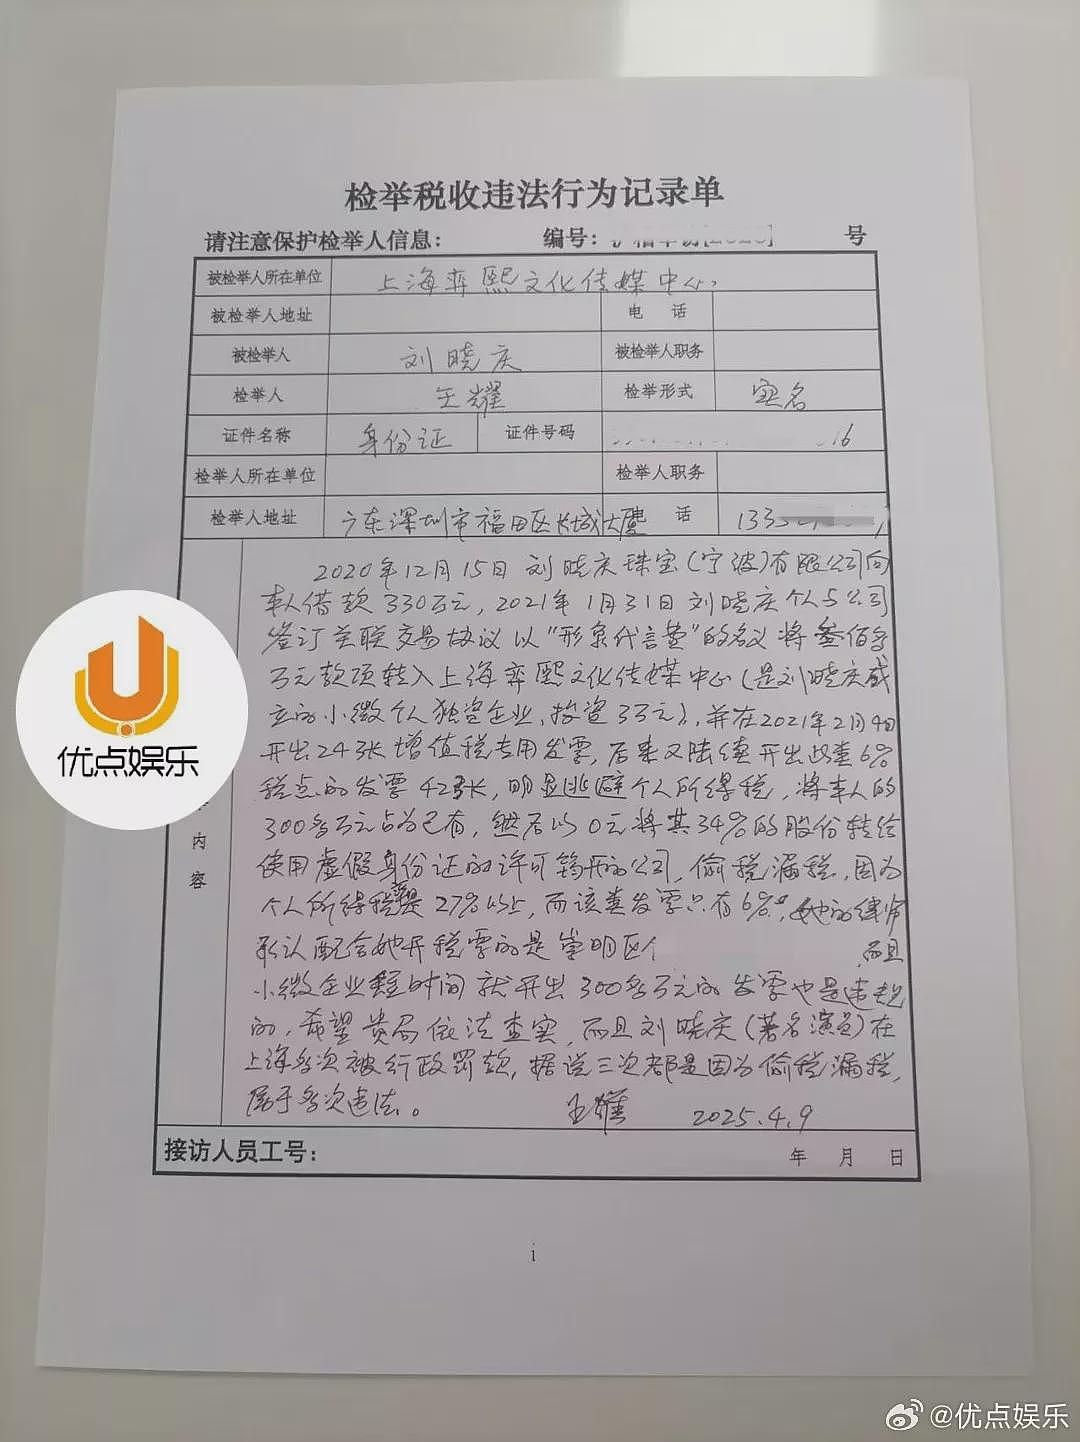 检举税收违法行为记录单
请注意保护检举人信息： 编号： 号
被检举人所在单位 上海弈熙文化传媒中心
被检举人地址 电 话
被检举人 刘晓庆 被检举人职务
检举人 王耀 检举形式 实名
证件名称 身份证 证件号码 16
检举人所在单位 检举人职务
检举人地址 广东深圳市福田区长城大厦 电 话 133
2020年12月15日刘晓庆珠宝(宁波)有限公司向
本人借款330万元，2021年1月31日刘晓庆个人与公司
签订关联交易协议以“形象代言费”的名义将叁佰多
万元款项转入上海弈熙文化传媒中心(是刘晓庆成
立的小微个人独资企业，投资3万元)，并在2021年2月4日
开出24张增值税专用发票，后来又陆续开出此类6%
税点的发票42张，明显逃避个人所得税，将本人的
300多万元占为己有，然后以0元将其34%的股份转给
使用虚假身份证的许可筹开的公司，偷税漏税，因为
个人所得税是27%以上，而该类发票只有6%，她的律师
承认配合她开税票的是崇明区 而且
小微企业短时间就开出300多万元的发票也是违规
的，希望贵局依法查实，而且刘晓庆(著名演员)在
上海多次被行政罚款，据说三次都是因为偷税漏税，
属于多次违法。 王耀 2025.4.9
内
容
接访人员工号： 年 月 日
i
优点娱乐
@优点娱乐